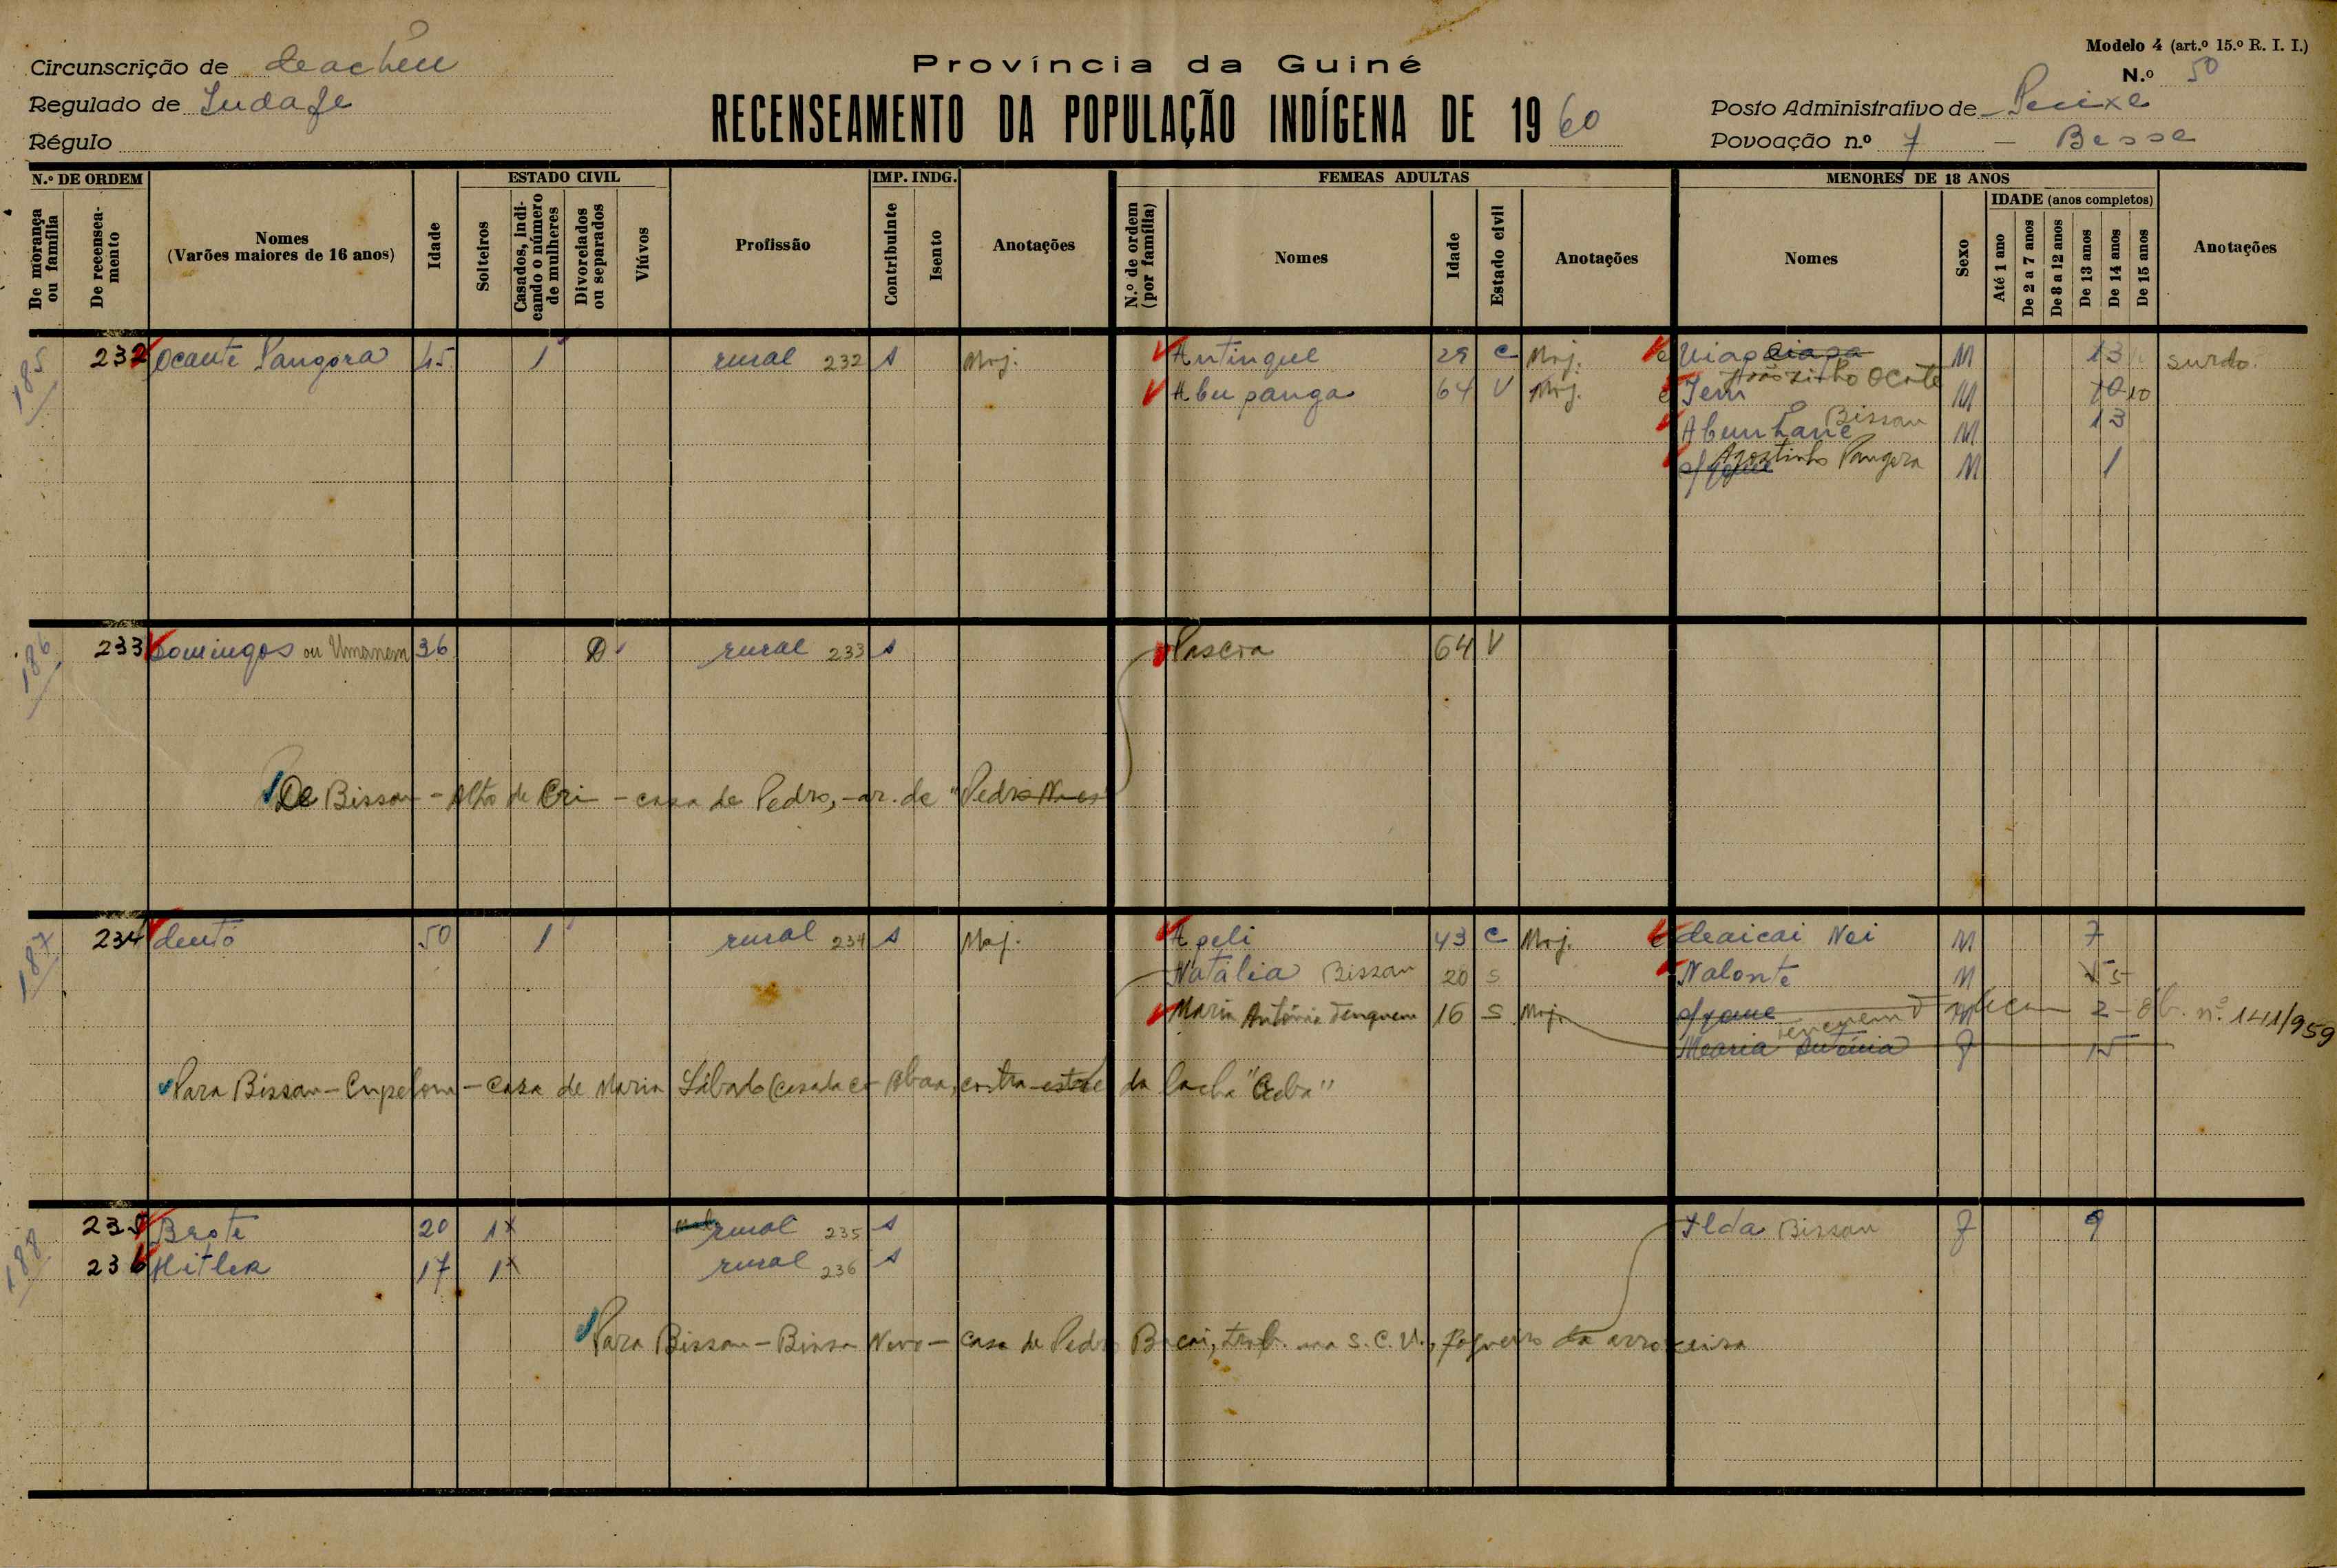 Circunscrição de Cacheu
Regulado de
Régulo
Província da Guiné
RECENSEAMENTO DA POPULAÇÃO INDÍGENA DE 1960
Modelo 4 (art.º 15.º R. I. I.)
N.º 50
Posto Administrativo de
Povoação n.º 7 - Besse
N.º DE ORDEM
De morança ou família
De recenseamento
Nomes (Varões maiores de 16 anos)
Idade
ESTADO CIVIL
Solteiros
Casados, indicando o número de mulheres
Divorciados ou separados
Viúvos
Profissão
IMP. INDG.
Contribuinte
Isento
Anotações
FEMEAS ADULTAS
N.º de ordem (por família)
Nomes
Idade
Estado civil
Anotações
MENORES DE 18 ANOS
Nomes
Sexo
IDADE (anos completos)
Até 1 ano
De 2 a 7 anos
De 8 a 12 anos
De 13 anos
De 14 anos
De 15 anos
Anotações
185 232 Ocante Pangora 45 1 rural 232 s Moj. Antingue 29 C Moj. M 13 surdo
Abupanga 64 V Moj. M 10
Bissau M 13
Agostinho Pangora M 1
186 233 Domingos ou Umanem 36 D rural 233 s Pascoa 64 V
De Bissau - Alto de Cri - casa de Pedro, - ar. de "Pedro
187 234 50 1 rural 234 s Moj. Apeli 43 C Moj. Nei M 7
Natália Bissau 20 S Nalonte M 5
Maria António 16 S Moj. 2 - n.º 141/959
Maria António F 15
Para Bissau - Cupelom - casa de Maria da "
188 235 Brote 20 1x rural 235 s Ilda Bissau F 9
236 Hitler 17 1x rural 236 s
Para Bissau - Bissau Novo - casa de Pedro Bacai, trab. na S. C. U., fogueiro da arrozeira